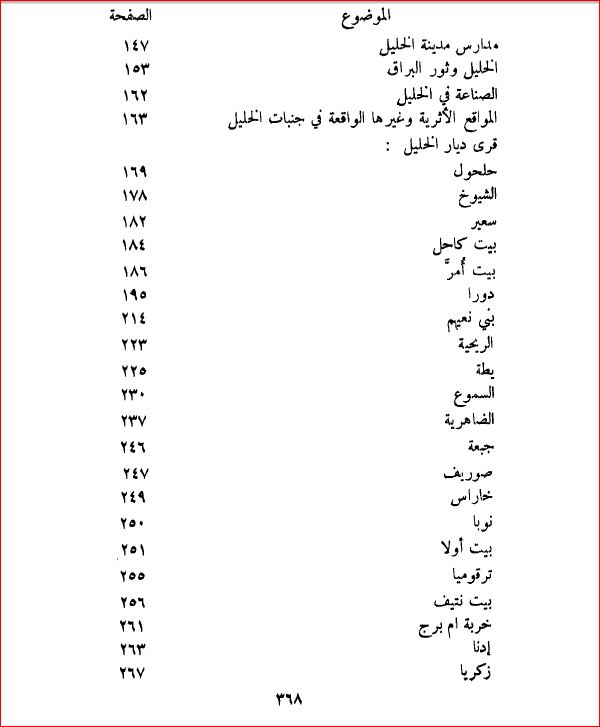 الموضوع الصفحة
مدارس مدينة الخليل ١٤٧
الخليل وثور البراق ١٥٣
الصناعة في الخليل ١٦٢
المواقع الأثرية وغيرها الواقعة في جنبات الخليل ١٦٣
قرى ديار الخليل :
حلحول ١٦٩
الشيوخ ١٧٨
سعير ١٨٢
بيت كاحل ١٨٤
بيت أُمرَّ ١٨٦
دورا ١٩٥
بني نعيهم ٢١٤
الريحية ٢٢٣
يطة ٢٢٥
السموع ٢٣٠
الضاهرية ٢٣٧
جبعة ٢٤٦
صوريف ٢٤٧
خاراس ٢٤٩
نوبا ٢٥٠
بيت أولا ٢٥١
ترقوميا ٢٥٥
بيت نتيف ٢٥٦
خربة ام برج ٢٦١
إدنا ٢٦٣
زكريا ٢٦٧
٣٦٨